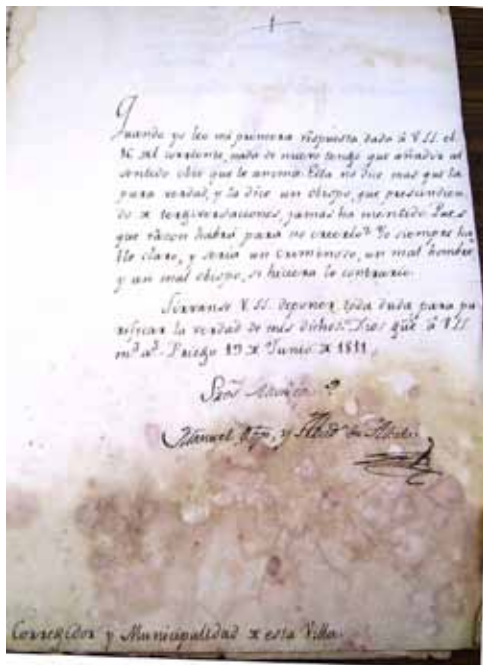 Quando yo leo mi primera respuesta dada á V.SS. el
16 del corriente, nada de nuevo tengo que añadir al
sentido obio que le anima. Ella no dice mas que la
pura verdad, y la dice un obispo, que prescindien
do x tergiversaciones, jamas ha mentido. Pues
que razon habrá para no creerlo? Yo siempre ha
blo claro, y seria un criminoso, un mal hombre
y un mal obispo, si hiciera lo contrario.
Sirvanse V.SS. deponer toda duda para pu
rificar la verdad de mis dichos. Dios gue á V.SS
m.s a.s Priego 19 x Junio x 1811.
Manuel Obpo, y Abad
Corregidor y Municipalidad x esta Villa.